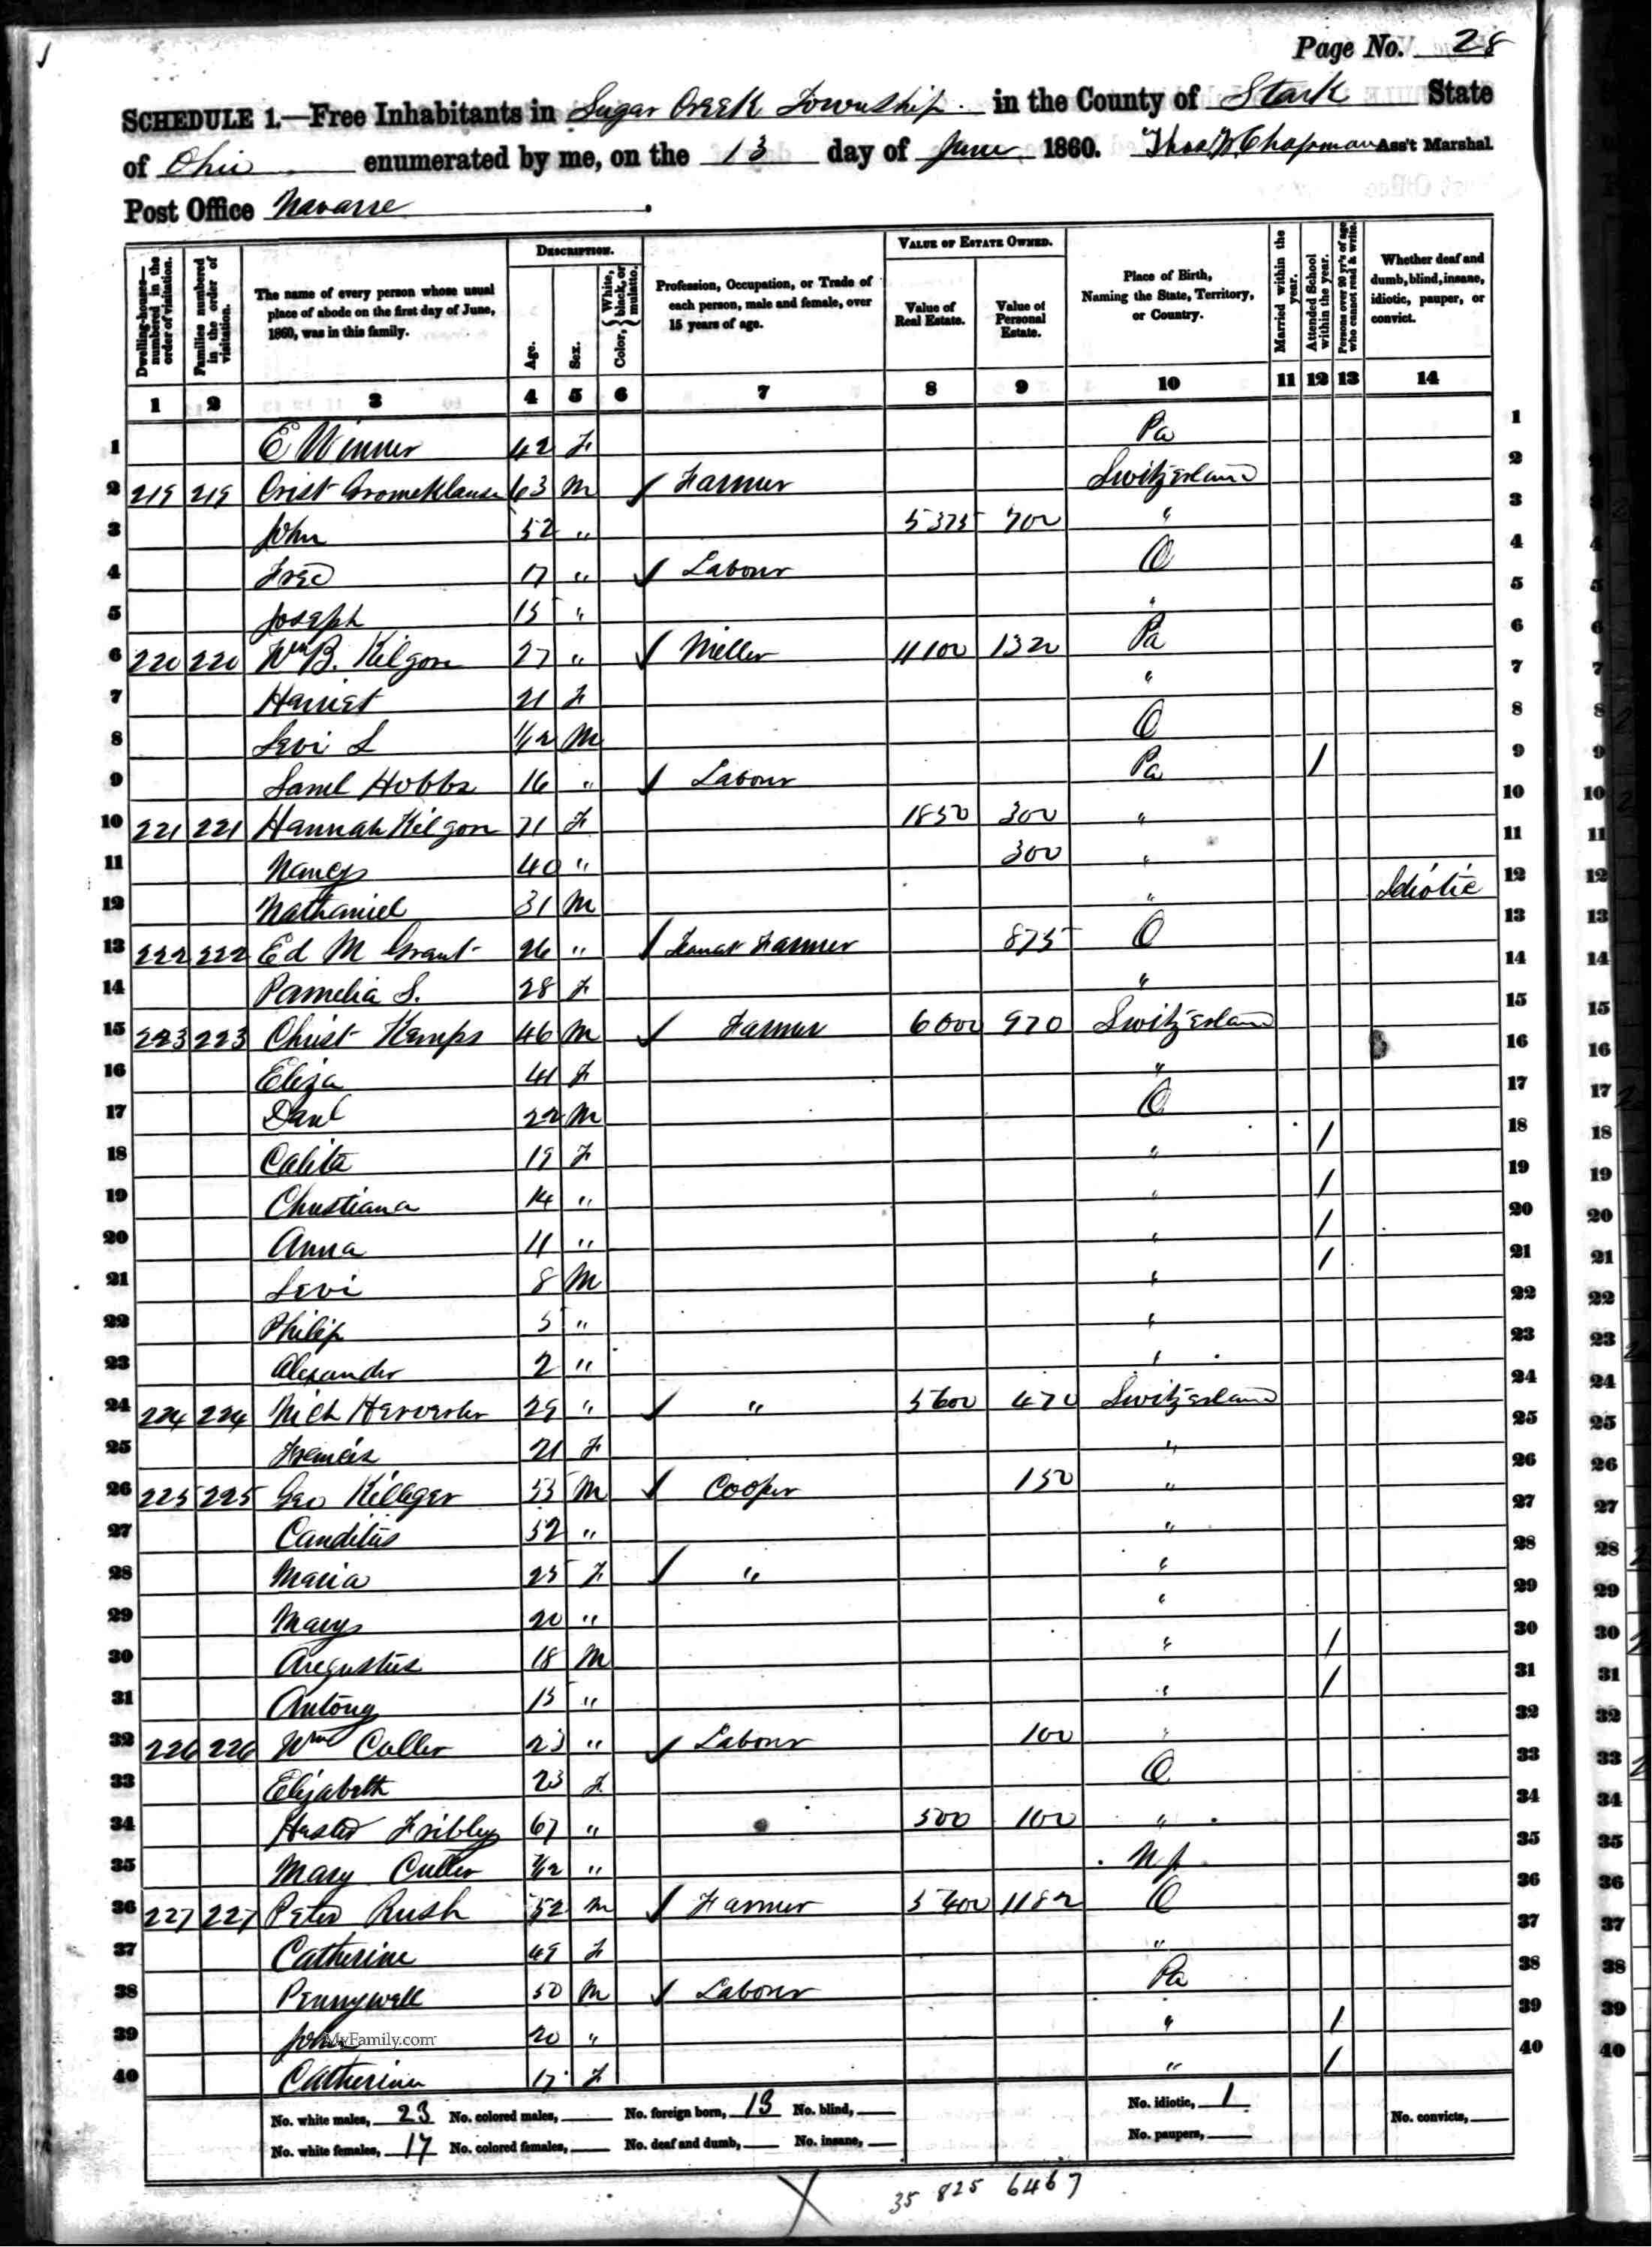 Page No. 28
SCHEDULE 1.—Free Inhabitants in Sugar Creek Township in the County of Stark State
of Ohio enumerated by me, on the 13 day of June 1860. Thos. W. Chapman Ass't Marshal
Post Office Navarre
Dwelling-houses—numbered in the order of visitation.
Families numbered in the order of visitation.
The name of every person whose usual place of abode on the first day of June, 1860, was in this family.
DESCRIPTION.
Age.
Sex.
Color, White, black, or mulatto.
Profession, Occupation, or Trade of each person, male and female, over 15 years of age.
VALUE OF ESTATE OWNED.
Value of Real Estate.
Value of Personal Estate.
Place of Birth, Naming the State, Territory, or Country.
Married within the year.
Attended School within the year.
Persons over 20 yr's of age who cannot read & write.
Whether deaf and dumb, blind, insane, idiotic, pauper, or convict.
1 2 3 4 5 6 7 8 9 10 11 12 13 14
1 E Winner 42 F Pa 1
2 219 219 Crist 63 M / Farmer Switzerland 2
3 John 52 " 5375 700 " 3
4 Fred 17 " / Labour O 4
5 Joseph 15 " " 5
6 220 220 Wm B. Kilgore 27 " / Miller 11100 1320 Pa 6
7 Harriet 21 F " 7
8 Levi L 1/12 M O 8
9 Saml Hobbs 16 " / Labour Pa / 9
10 221 221 Hannah Kilgore 71 F 1850 300 " 10
11 Nancy 40 " 300 " 11
12 Nathaniel 31 M " Idiotic 12
13 222 222 Ed M Grant 26 " / Tenant Farmer 875 O 13
14 Pamelia S. 28 F " 14
15 223 223 Christ Kemps 46 M / Farmer 6000 970 Switzerland 15
16 Eliza 41 F " 16
17 Danl 22 M O 17
18 Calita 19 F " / 18
19 Christiana 14 " " / 19
20 Anna 11 " " / 20
21 Levi 8 M " / 21
22 Philip 5 " " 22
23 Alexander 2 " " 23
24 224 224 Nich 29 " / " 5600 470 Switzerland 24
25 Francis 21 F " 25
26 225 225 Geo Killeger 55 M / Cooper 150 " 26
27 Canditus 52 " " 27
28 Maria 25 F / " " 28
29 Mary 20 " " 29
30 Augustus 18 M " / 30
31 Antony 15 " " / 31
32 226 226 Wm Culler 23 " / Labour 100 " 32
33 Elizabeth 23 F O 33
34 Hester Fribley 67 " 500 100 " 34
35 Mary Culler " N J. 35
36 227 227 Peter Rush 52 M / Farmer 5400 1182 O 36
37 Catherine 49 F " 37
38 Pennywell 50 M / Labour Pa 38
39 John 20 " " / 39
MyFamily.com
40 Catherine 17 F " / 40
No. white males, 23 No. colored males, No. foreign born, 13 No. blind, No. idiotic, 1 No. convicts,
No. white females, 17 No. colored females, No. deaf and dumb, No. insane, No. paupers,
35 825 6467